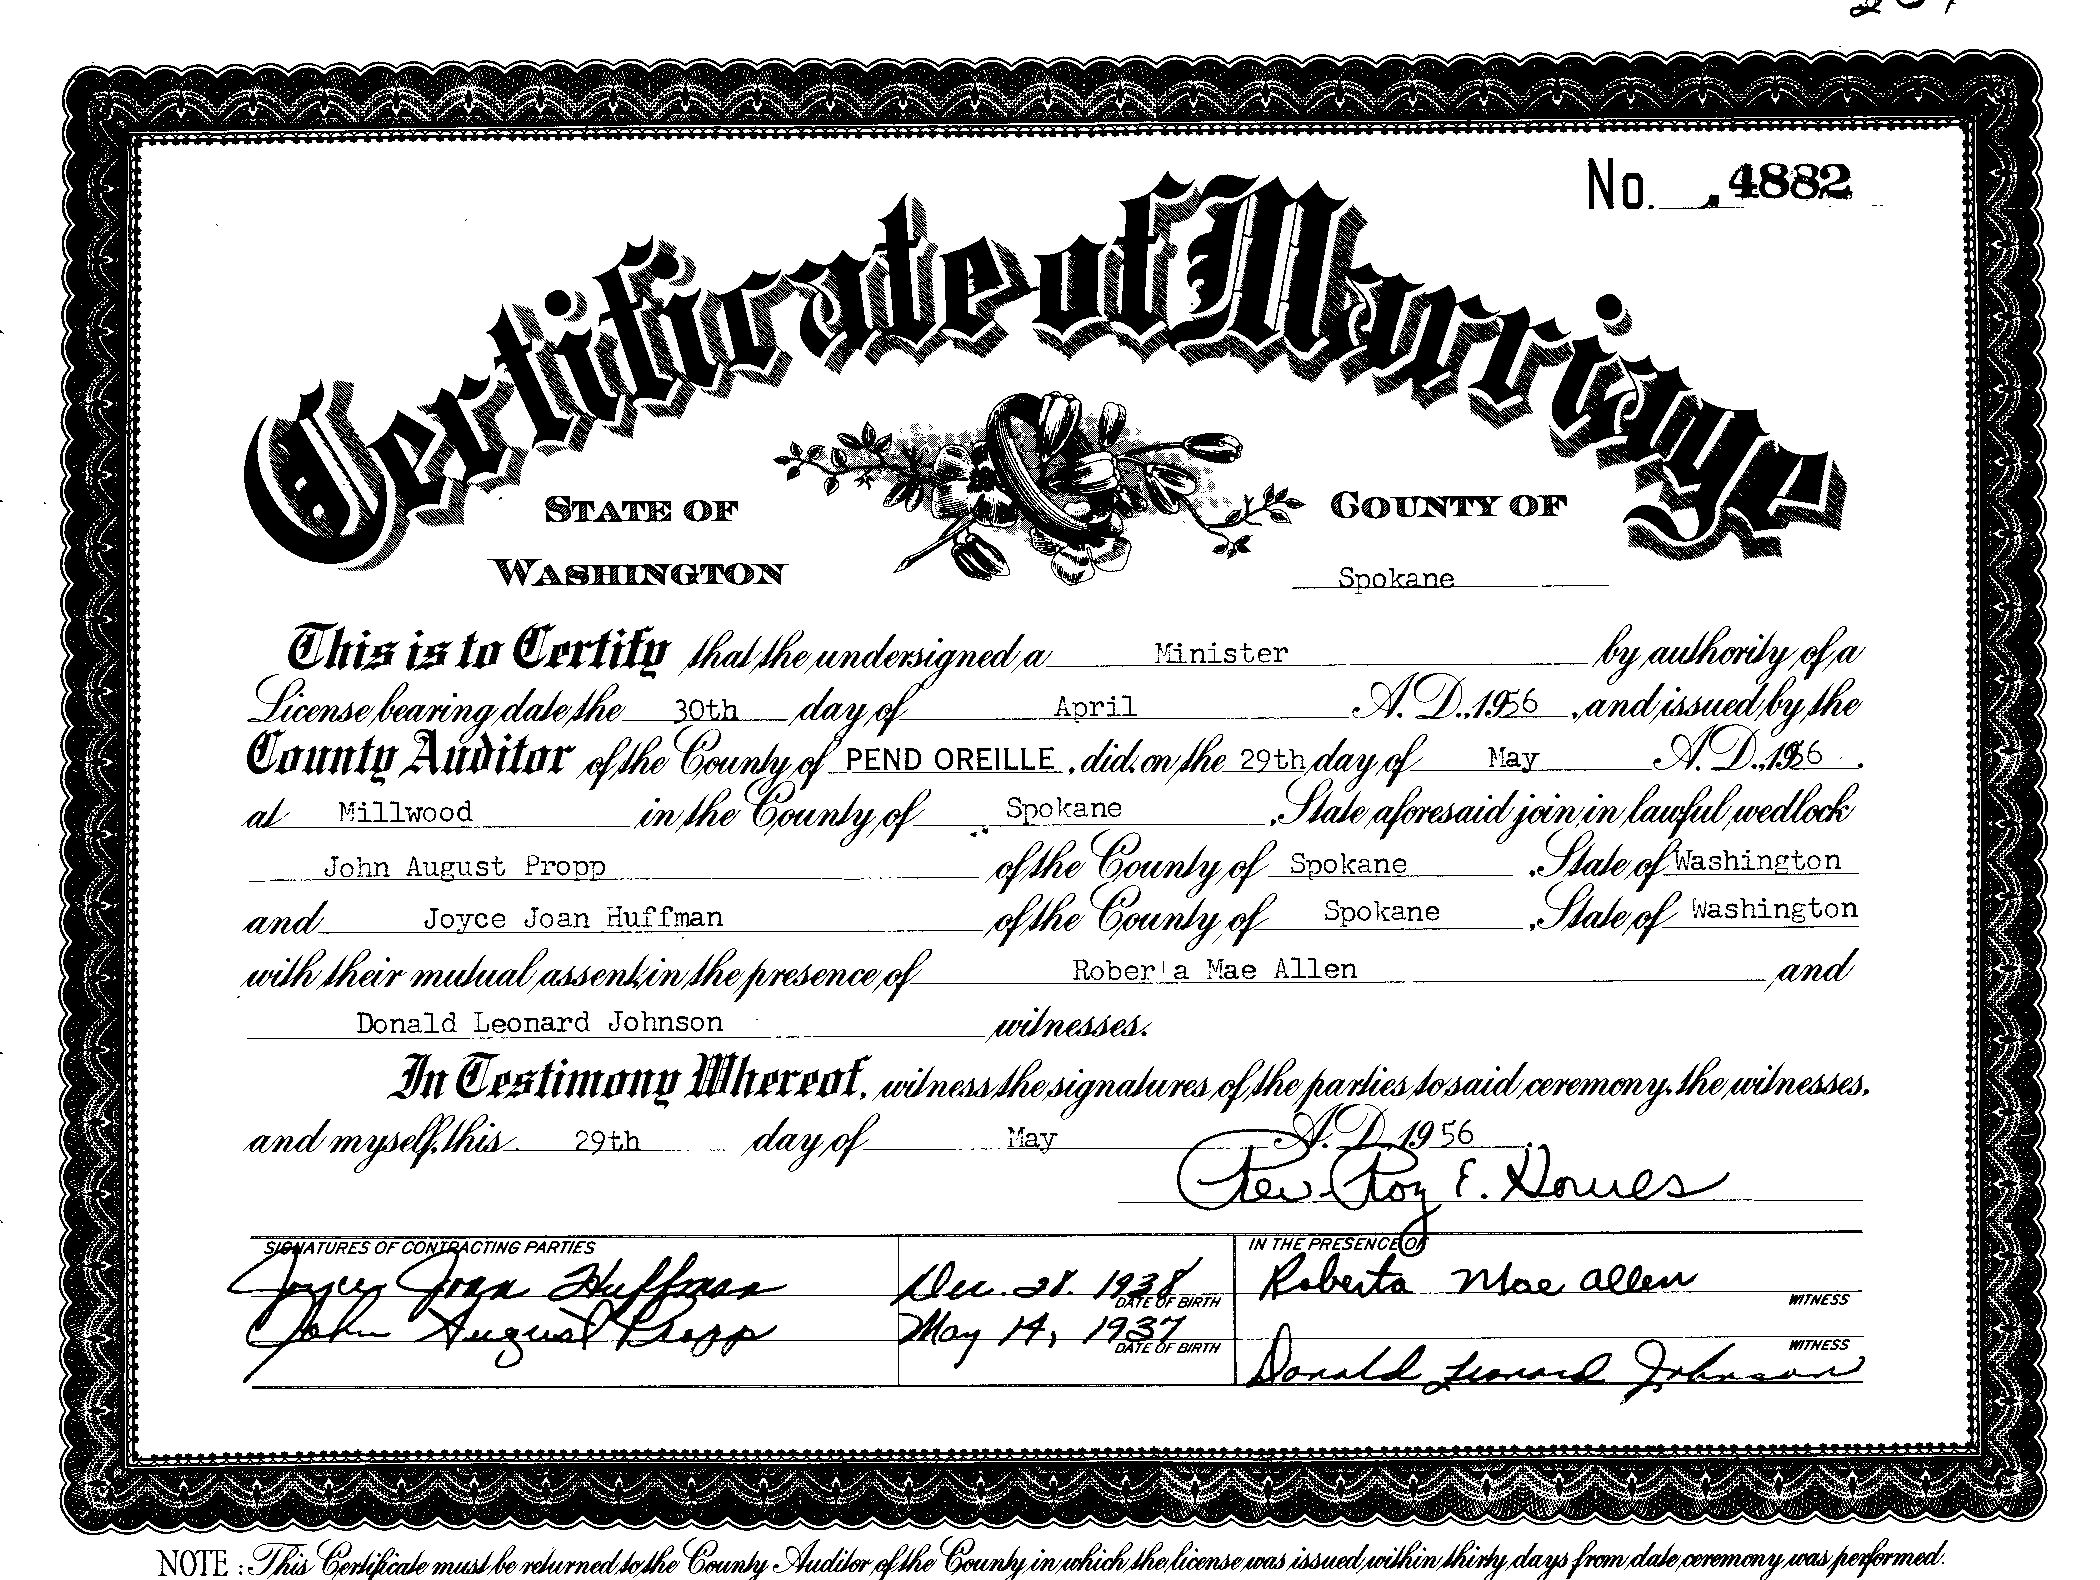 No. 4882
Certificate of Marriage
STATE OF WASHINGTON
COUNTY OF Spokane
This is to Certify that the undersigned a Minister by authority of a
License bearing date the 30th day of April A.D., 1956, and issued by the
County Auditor of the County of PEND OREILLE, did, on the 29th day of May A.D., 1956.
at Millwood in the County of Spokane, State aforesaid join in lawful wedlock
John August Propp of the County of Spokane, State of Washington
and Joyce Joan Huffman of the County of Spokane, State of Washington
with their mutual assent, in the presence of Roberta Mae Allen and
Donald Leonard Johnson witnesses.
In Testimony Whereof, witness the signatures of the parties to said ceremony, the witnesses,
and myself, this 29th day of May A.D. 1956.
Rev. Roy E. Howes
SIGNATURES OF CONTRACTING PARTIES
IN THE PRESENCE OF
Joyce Joan Huffman Dec. 28. 1938 DATE OF BIRTH Roberta Mae Allen WITNESS
John August Propp May 14, 1937 DATE OF BIRTH WITNESS
Donald Leonard Johnson
NOTE: This Certificate must be returned to the County Auditor of the County in which the license was issued within thirty days from date ceremony was performed.